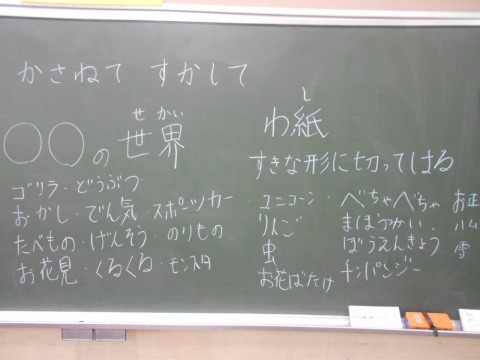 かさねて すかして
せかい
○○の世界
し
わ紙
すきな形に切ってはる
ゴリラ・どうぶつ
おかし・でん気・スポーツカー
たべもの・げんそう・のりもの
お花見・くるくる・モンスタ
・ユニコーン・べちゃべちゃ お正
りんご まほうつかい ハム
虫 ぼうえんきょう 雪
お花ばたけ チンパンジー